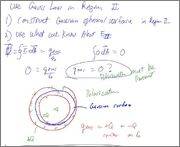 Use Gauss Law in Region II.
1) Construct Gaussian spherical surface in Region II.
2) Use what we know about E_II
Φ = ∮E·dA = q_enc/ε₀
∮ 0 dA = 0
0 = q_enc/ε₀
q_enc = 0 ?
must be
Present
Polarization
Gaussian surface
+Q
q_enc = +Q - Q